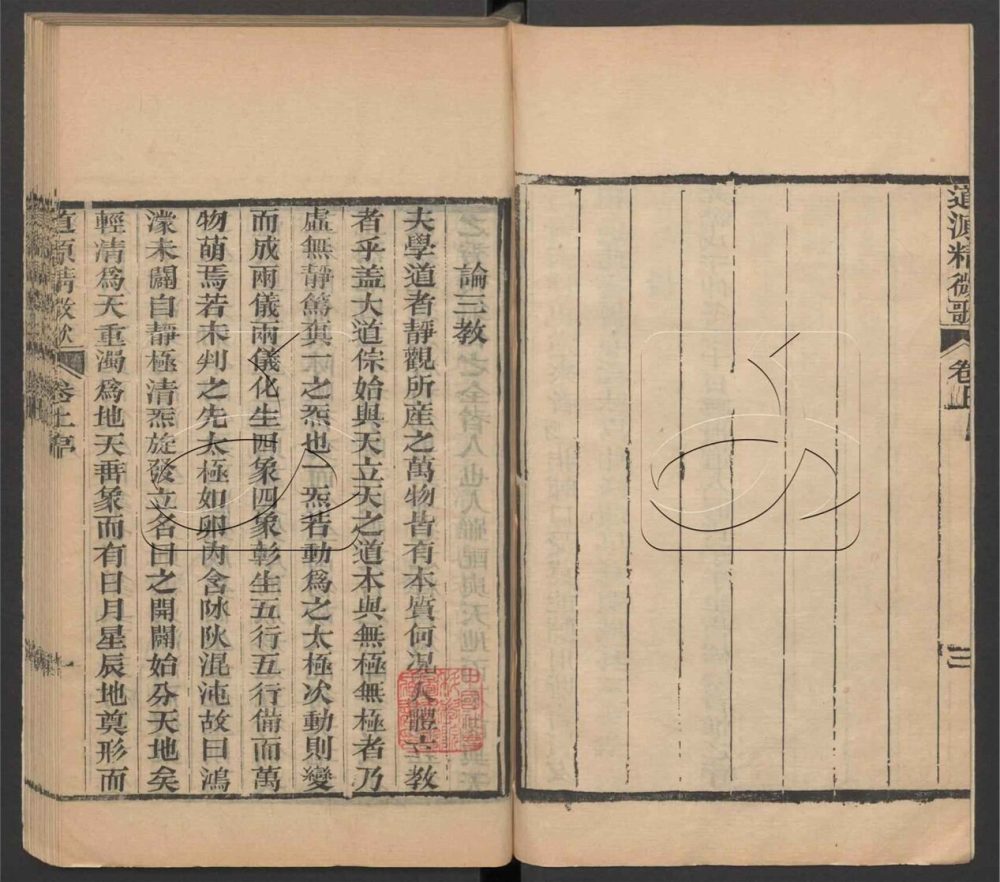 道源精微歌 卷上 三
論三教
夫學道者靜觀所産之萬物皆有本質何况人體立教
者乎盖大道倧始與天立天之道本與無極無極者乃
虛無靜篤眞一之炁也一炁若動爲之太極次動則變
而成兩儀兩儀化生四象四象彰生五行五行備而萬
物萌焉若未判之先太極如卵內含𣱏炚混沌故曰鴻
濛未闢自靜極清炁旋發立名曰之開闢始分天地矣
輕清爲天重濁爲地天垂象而有日月星辰地奠形而
道源精微歌 卷上 一